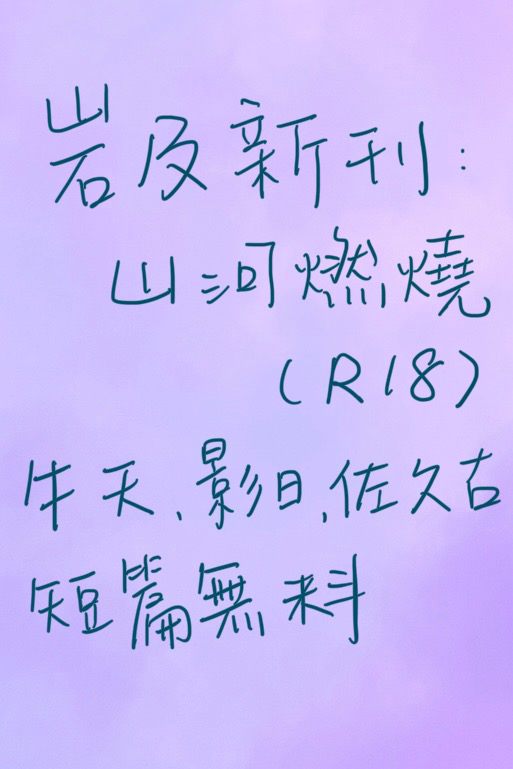 岩及新刊:
山河燃燒
(R18)
牛天、影日、佐久古
短篇無料